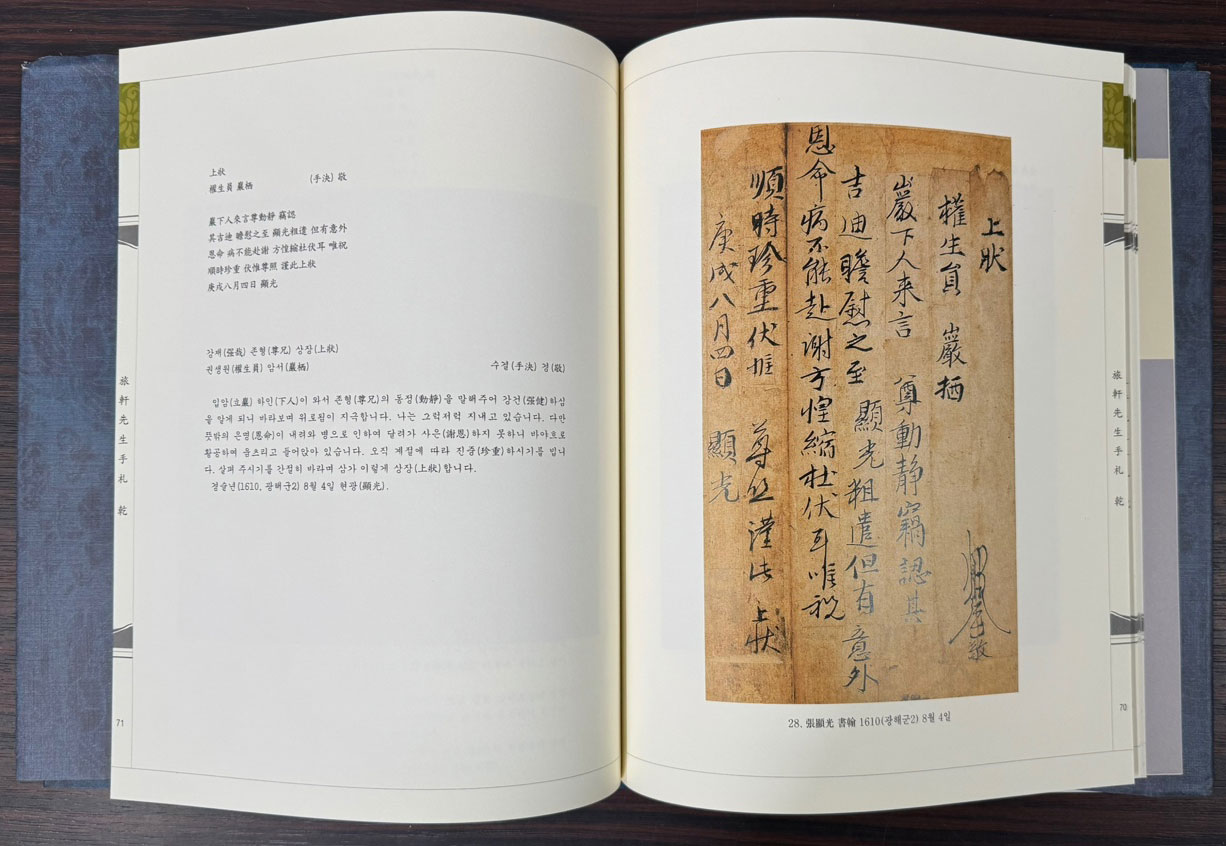 上狀
權生員 巖栖
(手決) 敬
巖下人來言尊動靜 竊認
其吉迪 瞻慰之至 顯光粗遣 但有意外
恩命 病不能赴謝 方惶縮杜伏耳 唯祝
順時珍重 伏惟尊照 謹此上狀
庚戌八月四日 顯光
강재(强哉) 존형(尊兄) 상장(上狀)
권생원(權生員) 암서(巖栖)
수결(手決) 경(敬)
입암(立巖) 하인(下人)이 와서 존형(尊兄)의 동정(動靜)을 말해주어 강건(强健)하심
을 알게 되니 바라보며 위로됨이 지극합니다. 나는 그럭저럭 지내고 있습니다. 다만
뜻밖의 은명(恩命)이 내려와 병으로 인하여 달려가 사은(謝恩)하지 못하니 바야흐로
황공하여 움츠리고 들어앉아 있습니다. 오직 계절에 따라 진중(珍重)하시기를 빕니
다. 살펴 주시기를 간절히 바라며 삼가 이렇게 상장(上狀)합니다.
경술년(1610, 광해군2) 8월 4일 현광(顯光).
旅軒先生手札 乾
71
上狀
權生員 巖栖
敬
巖下人来言 尊動靜竊認其
吉迪瞻慰之至 顯光粗遣但有意外
恩命病不能赴謝方惶縮杜伏耳唯祝
順時珍重伏惟 尊照謹此上狀
庚戌八月四日 顯光
28. 張顯光 書翰 1610(광해군2) 8월 4일
旅軒先生手札 乾
70